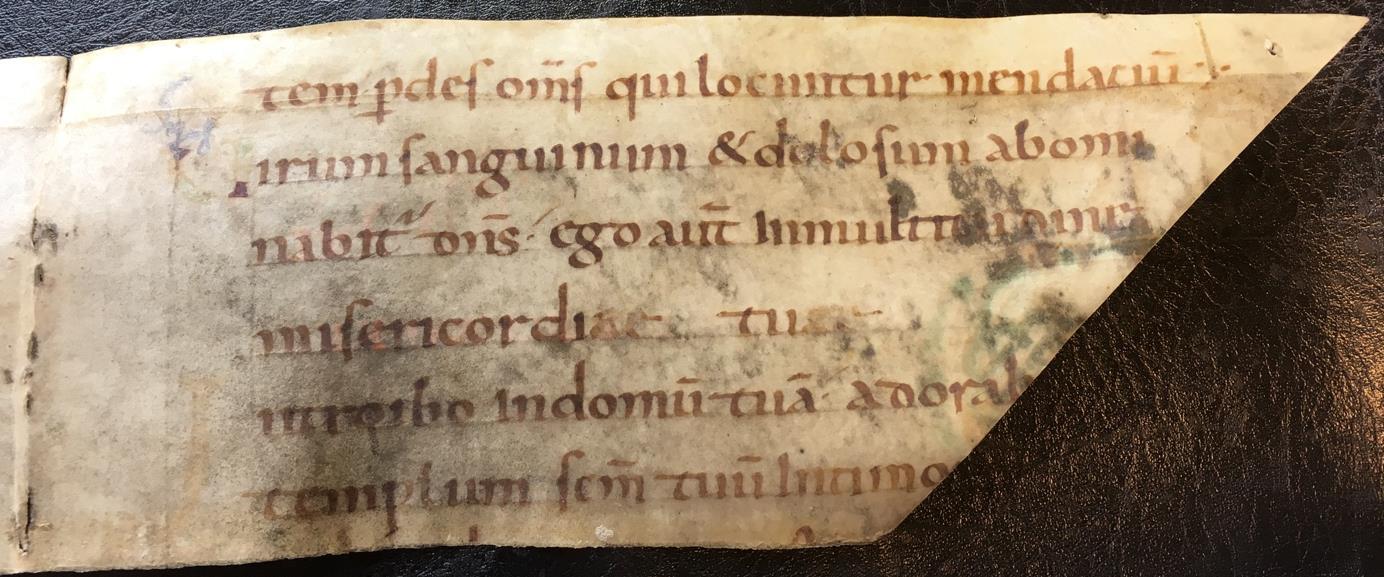 tem pdes om̅s qui locuntur mendaciu̅
irum sanguinum & dolosum abomi
nabit̅ dn̅s ego aut̅ In multitudine
misericordiae tuae
introibo In domu̅ tua̅ adorab
templum sc̅m̅ tuu̅ In timo